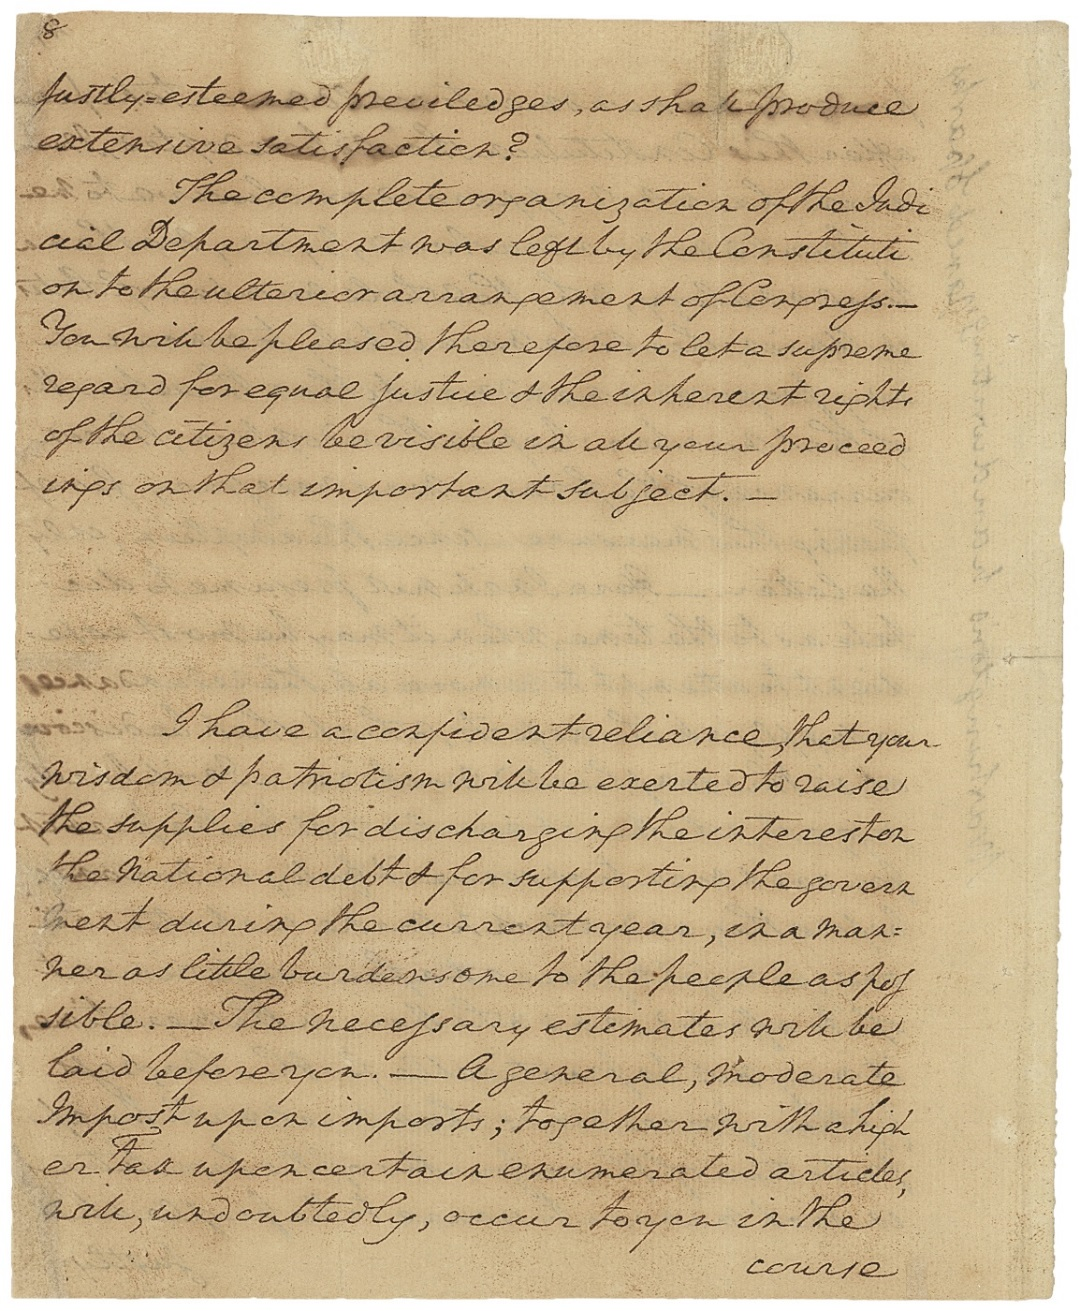 8
justly=esteemed previledges, as shall produce
extensive satisfaction?
The complete organization of the Judi
cial Department was left by the Constituti
on to the ulterior arrangement of Congress.—
You will be pleased therefore to let a supreme
regard for equal justice & the inherent rights
of the citizens be visible in all your proceed
ings on that important subject. —
I have a confident reliance, that your
wisdom & patriotism will be exerted to raise
the supplies for discharging the interest on
the National debt & for supporting the govern
ment during the current year, in a man=
ner as little burdensome to the people as pos
sible. — The necessary estimates will be
laid before you. — A general, moderate
Impost upon imports; together with a high
er Tax upon certain enumerated articles,
will, undoubtedly, occur to you in the
course